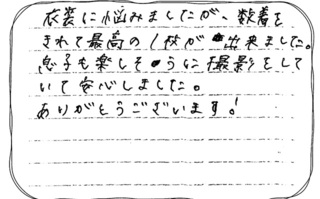 衣装に悩みましたが、数着を
きれて最高の1枚が出来ました。
息子も楽しそうに撮影をして
いて安心しました。
ありがとうございます!